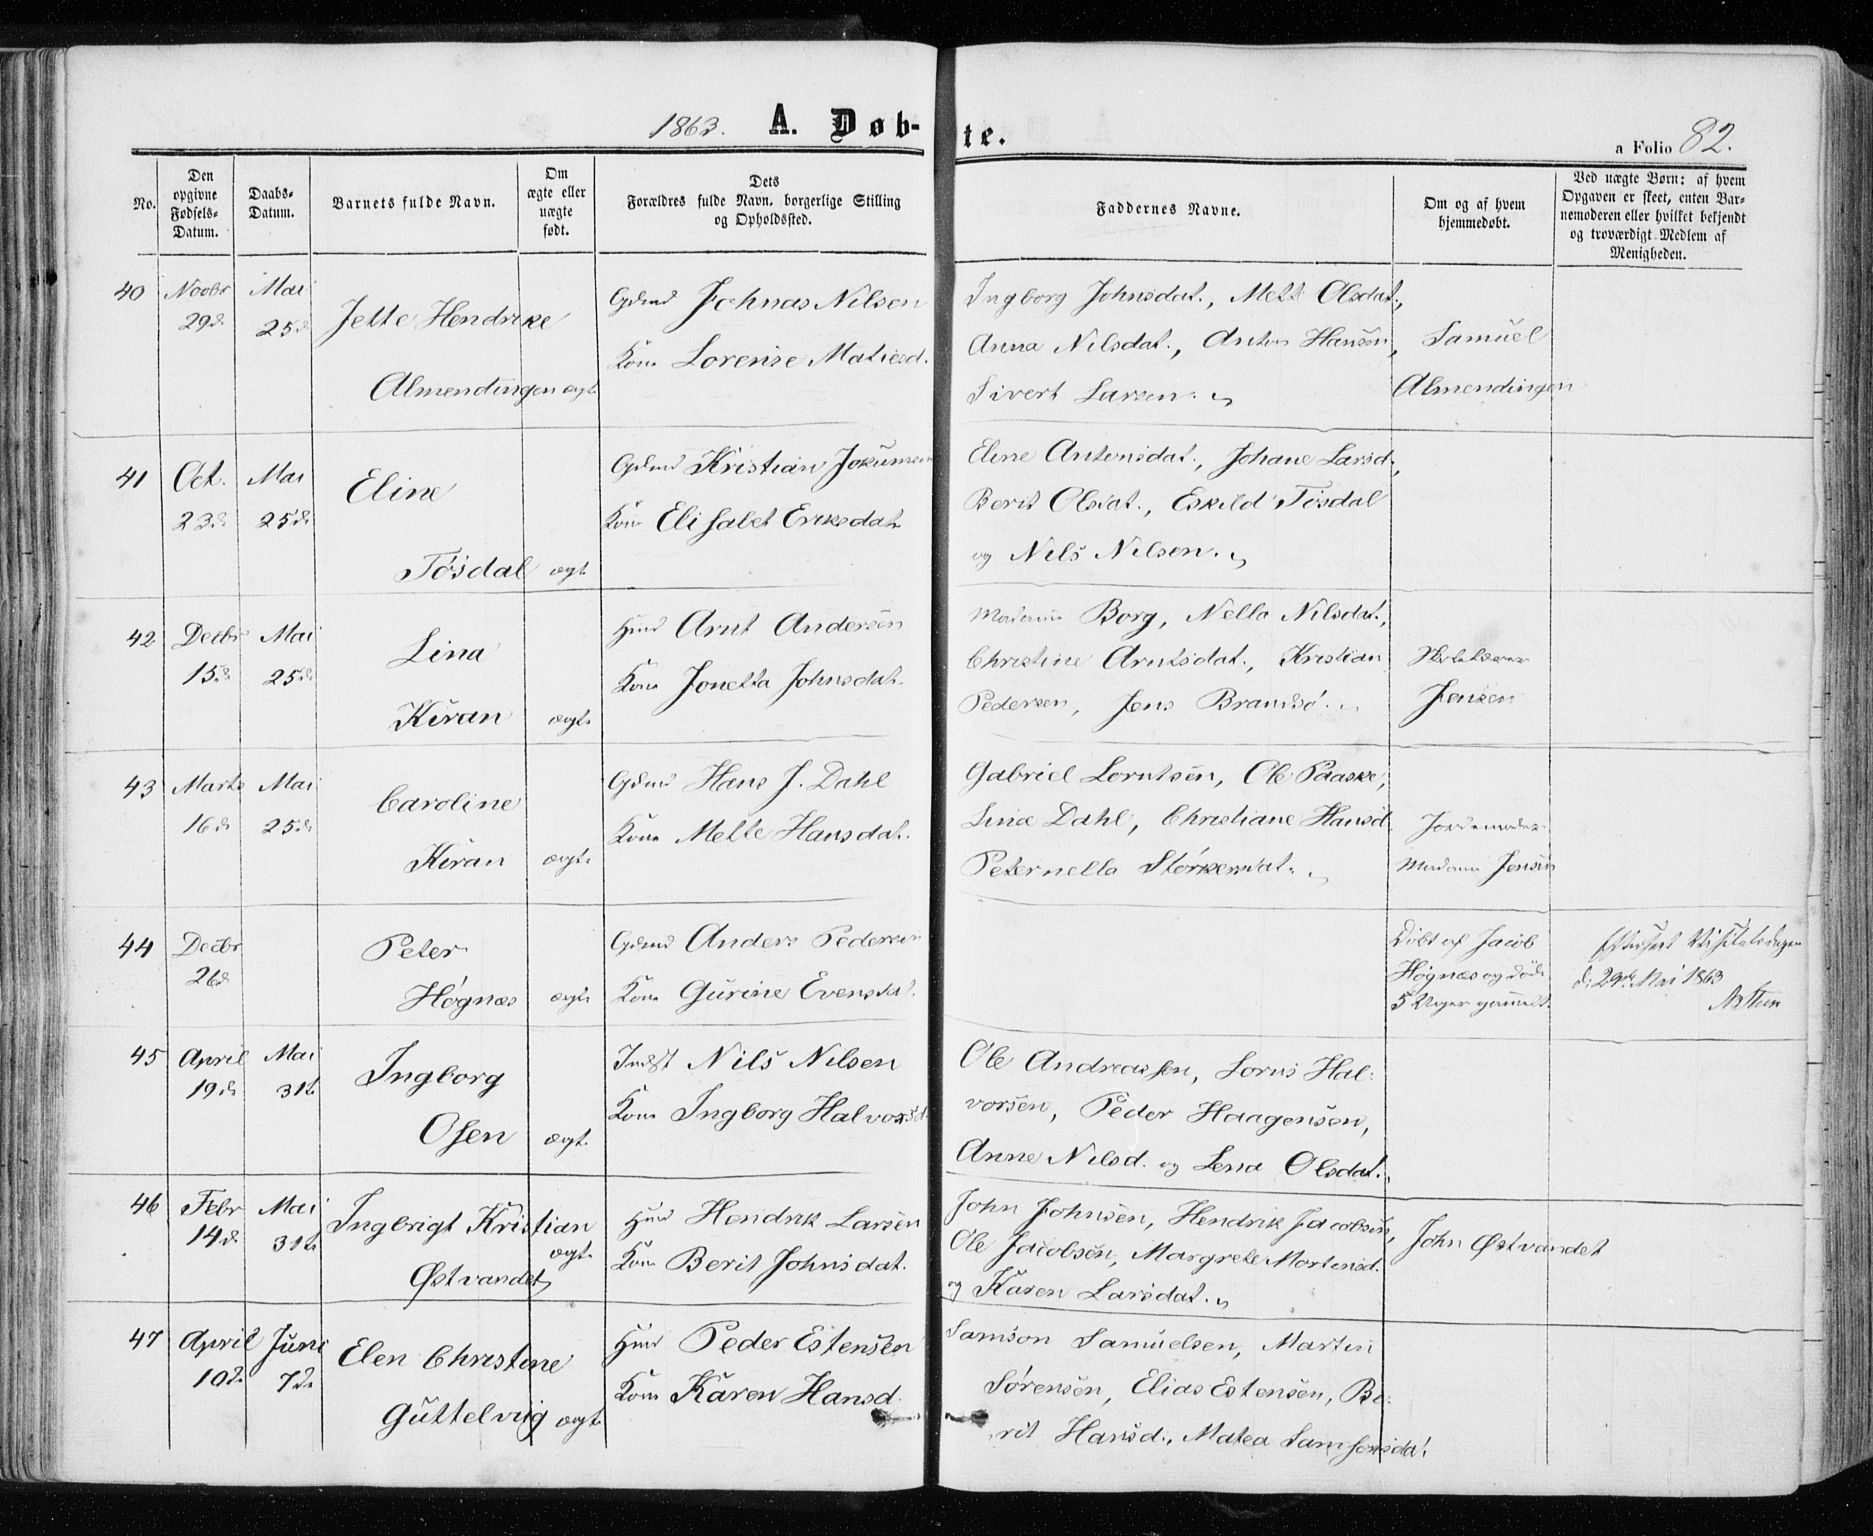 1863. A. Døb-te. a Folio 82.
No.
Den opgivne Fødsels-Datum.
Daabs-Datum.
Barnets fulde Navn.
Om ægte eller uægte født.
Dets Forældres fulde Navn, borgerlige Stilling og Opholdssted.
Faddernes Navne.
Om og af hvem hjemmedøbt.
Ved uægte Børn: af hvem Opgaven er skeet, enten Barnemoderen eller hvilket bekjendt og troværdigt Medlem af Menigheden.
40
Novbr
29d
Mai
25d
Jette Hendrike
Almendingen
ægt.
Gdmd Johnas Nilsen
Kone Lorense Matiesd.
Ingborg Johnsdat., Mette Olsdat.,
Anna Nilsdat., Anton Hansen,
Sivert Larsen.
Samuel
Almendingen
41
Oct.
23d
Mai
25d
Eline
Tøsdal
ægt.
Gdmd Kristian Jokumsen
Kone Elisabet Eriksdat.
Eline Antonsdat., Johane Larsd.,
Berit Olsdat., Eskild Tøsdal
og Nils Nilsen.
42
Decbr
15d
Mai
25d
Lina
Kiran
ægt.
Hmd Arnt Andersen
Kone Jonetta Johnsdat.
Madame Borg, Nella Nilsdat.,
Christine Arntsdat., Kristian
Pedersen, Jens Brandsø.
Jensen
43
Marts
16d
Mai
25d
Caroline
Kiran
ægt.
Gdmd Hans J. Dahl
Kone Mette Hansdat.
Gabriel Lorntsen, Ole Paaske,
Lina Dahl, Christiane Hansd.
Peternella Størkersdat.
Jordemoder
Madame Jensen
44
Decbr
26d
Peter
Høgnæs
ægt.
Gdmd Anders Pedersen
Kone Gurine Evensdat.
Døbt af Jacob
Høgnæs og døde
5 Uger gammelt.
Efterseet Visitatsdagen
d. 29de Mai 1863
45
April
19d
Mai
31te
Ingborg
Osen
ægt.
Indst Nils Nilsen
Kone Ingborg Halvorsd.
Ole Andreassen, Lorns Hal-
vorsen, Peder Haagensen,
Anne Nilsd. og Lena Olsdat.
46
Febr
14d
Mai
31te
Ingbrigt Kristian
Østvandet
ægt.
Hmd Hendrik Larsen
Kone Berit Johnsdat.
John Johnsen, Hendrik Jacobsen,
Ole Jacobsen, Margrete Mortensd.
og Karen Larsdat.
John Østvandet
47
April
10d
Juni
7de
Elen Christine
Guttelviig
ægt.
Hmd Peder Estensen
Kone Karen Hansd.
Samson Samuelsen, Martin
Sørensen, Elias Estensen, Be-
rit Hansd., Matea Samsonsdat.